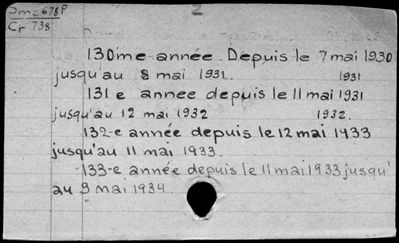 Smc 678 P 2
Cr 738
130me année Depuis le 7 mai 1930
jusqu'au 8 mai 1931. 1931
131 e annee depuis le 11 mai 1931
jusqu'au 12 mai 1932 1932.
132-e année depuis le 12 mai 1933
jusqu'au 11 mai 1933.
133-e année depuis le 11 mai 1933 jusqu'
au 9 mai 1934.